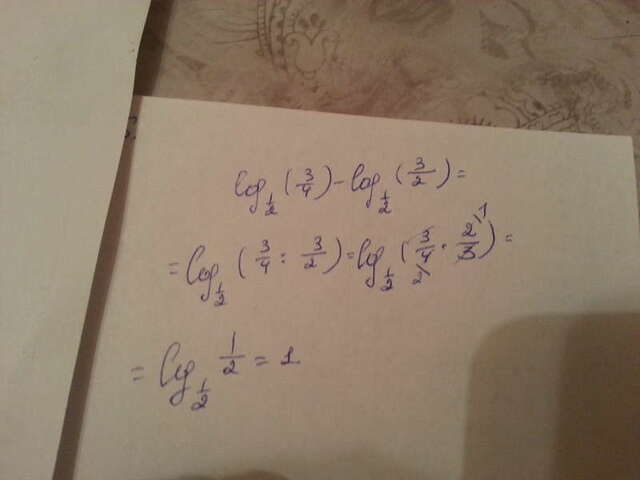 log_{1/2} (3/4) - log_{1/2} (3/2) =
= log_{1/2} (3/4 : 3/2) = log_{1/2} (3/4 · 2/3) =
2 1
= log_{1/2} 1/2 = 1